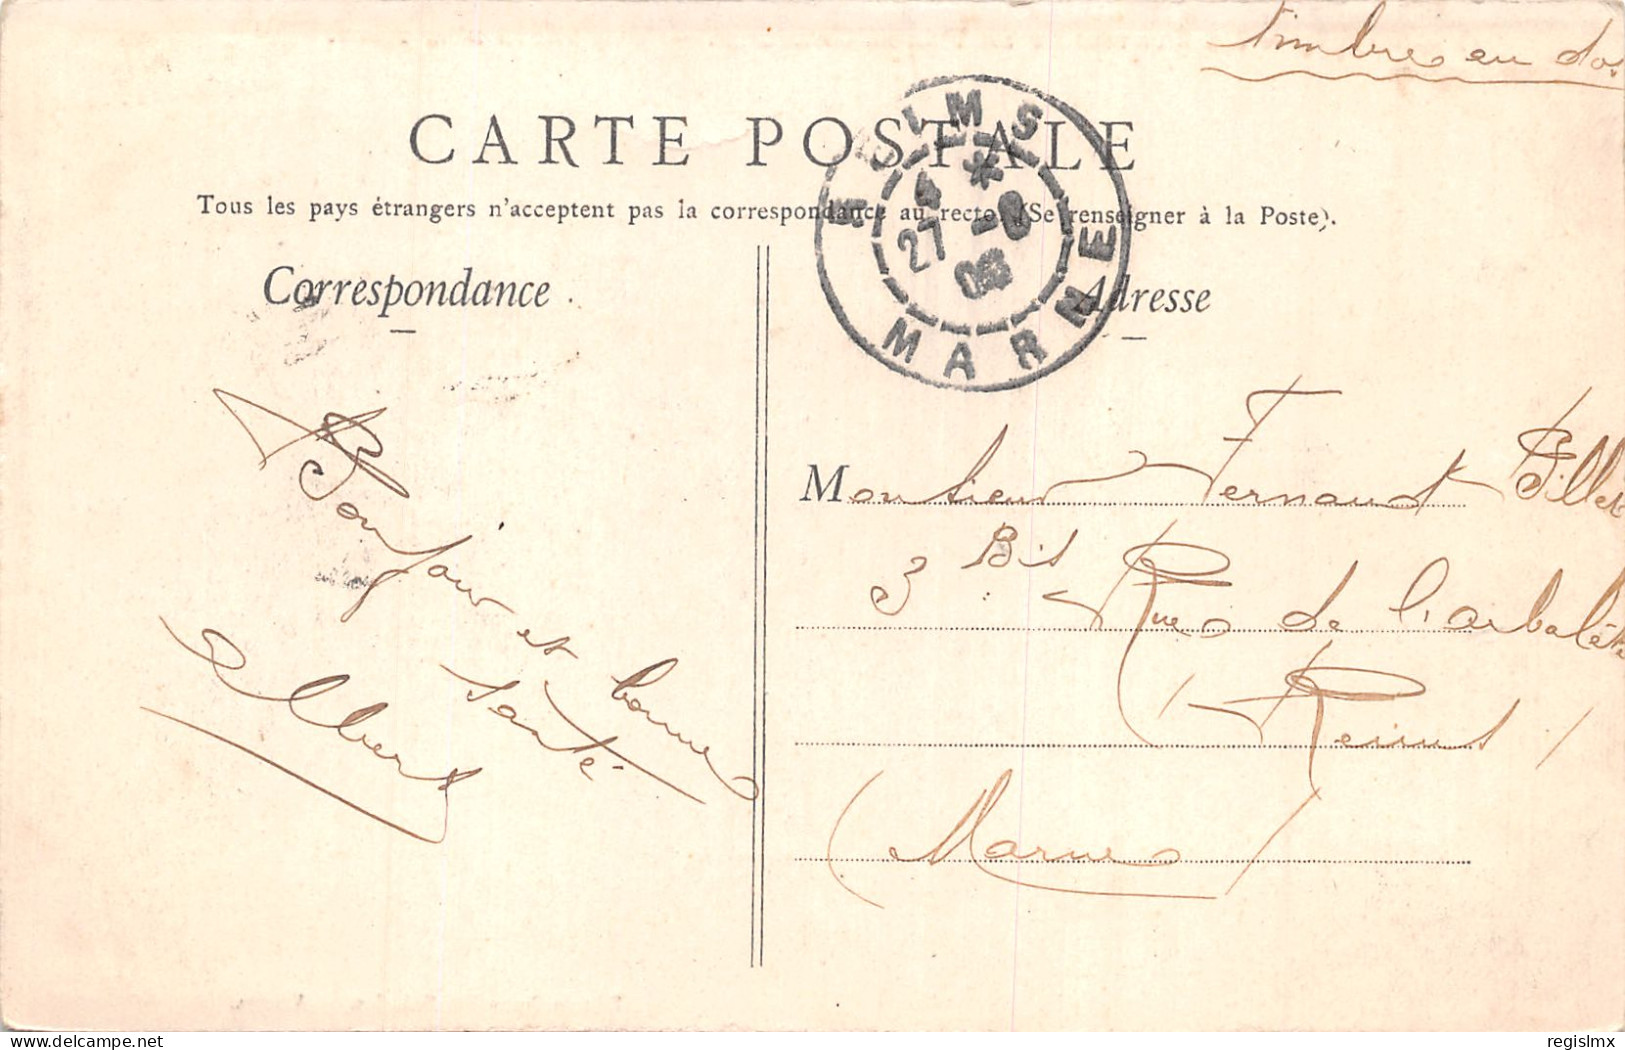 Timbre en dos
CARTE POSTALE
Tous les pays étrangers n'acceptent pas la correspondance au recto. (Se renseigner à la Poste).
REIMS
4 *
27 -8
06
MARNE
Correspondance
Bonjour et bonne
santé
Albert
Adresse
Monsieur Fernand Billet
3 Bis Rue de l'arbalète
Reims
(Marne)
delcampe.net
regislmx